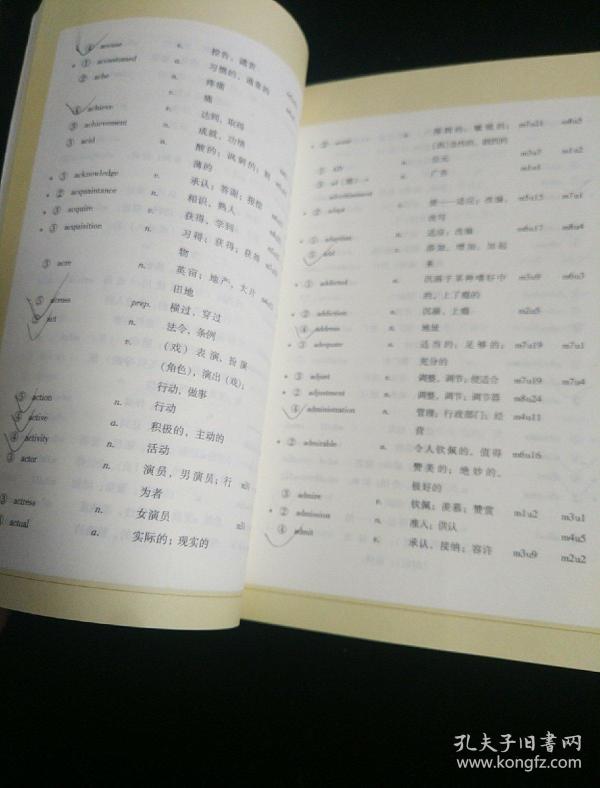 ④ accuse v. 控告，谴责
• ① accustomed a. 习惯的，通常的
② ache n. 疼痛
v. 痛
⑥ achieve v. 达到；取得
③ achievement n. 成就，功绩
③ acid a. 酸的；讽刺的；刻
薄的
• ③ acknowledge v. 承认；答谢；报偿
• ② acquaintance n. 相识，熟人
• ③ acquire v. 获得，学到
• ③ acquisition n. 习得；获得；获得
物
③ acre n. 英亩；地产，大片
田地
⑤ across prep. 横过，穿过
⑤ act n. 法令，条例
v. （戏）表演，扮演
（角色），演出（戏）；
行动，做事
⑤ action n. 行动
④ active a. 积极的，主动的
④ activity n. 活动
③ actor n. 演员，男演员；行
为者
③ actress n. 女演员
① actual a. 实际的；现实的
m7u21 m8u5
公元 m3u2 m1u2
advertisement n. 广告 m1u1
• ② adapt v. 使……适应；改编， m5u15 m7u1
改写
• ① adaption n. 适应；改编 m6u17 m8u4
⑤ add v. 添加，增加，加起
来
• ① addicted a. 沉溺于某种嗜好中 m3u9 m6u3
的，上了瘾的
• ② addiction n. 沉溺，上瘾 m2u5
④ address n. 地址
• ③ adequate a. 适当的；足够的； m7u19 m7u1
充分的
• ③ adjust v. 调整，调节；使适合 m7u19 m7u4
• ② adjustment n. 调整，调节；调节器 m8u24
④ administration n. 管理；行政部门；经 m4u11
营
• ② admirable a. 令人钦佩的，值得 m6u16
赞美的；绝妙的，
极好的
③ admire v. 钦佩；羡慕；赞赏 m1u2 m3u1
• ② admission n. 准入；供认 m4u5
④ admit v. 承认，接纳；容许 m3u9 m2u2
孔夫子旧书网
www.kongfz.com